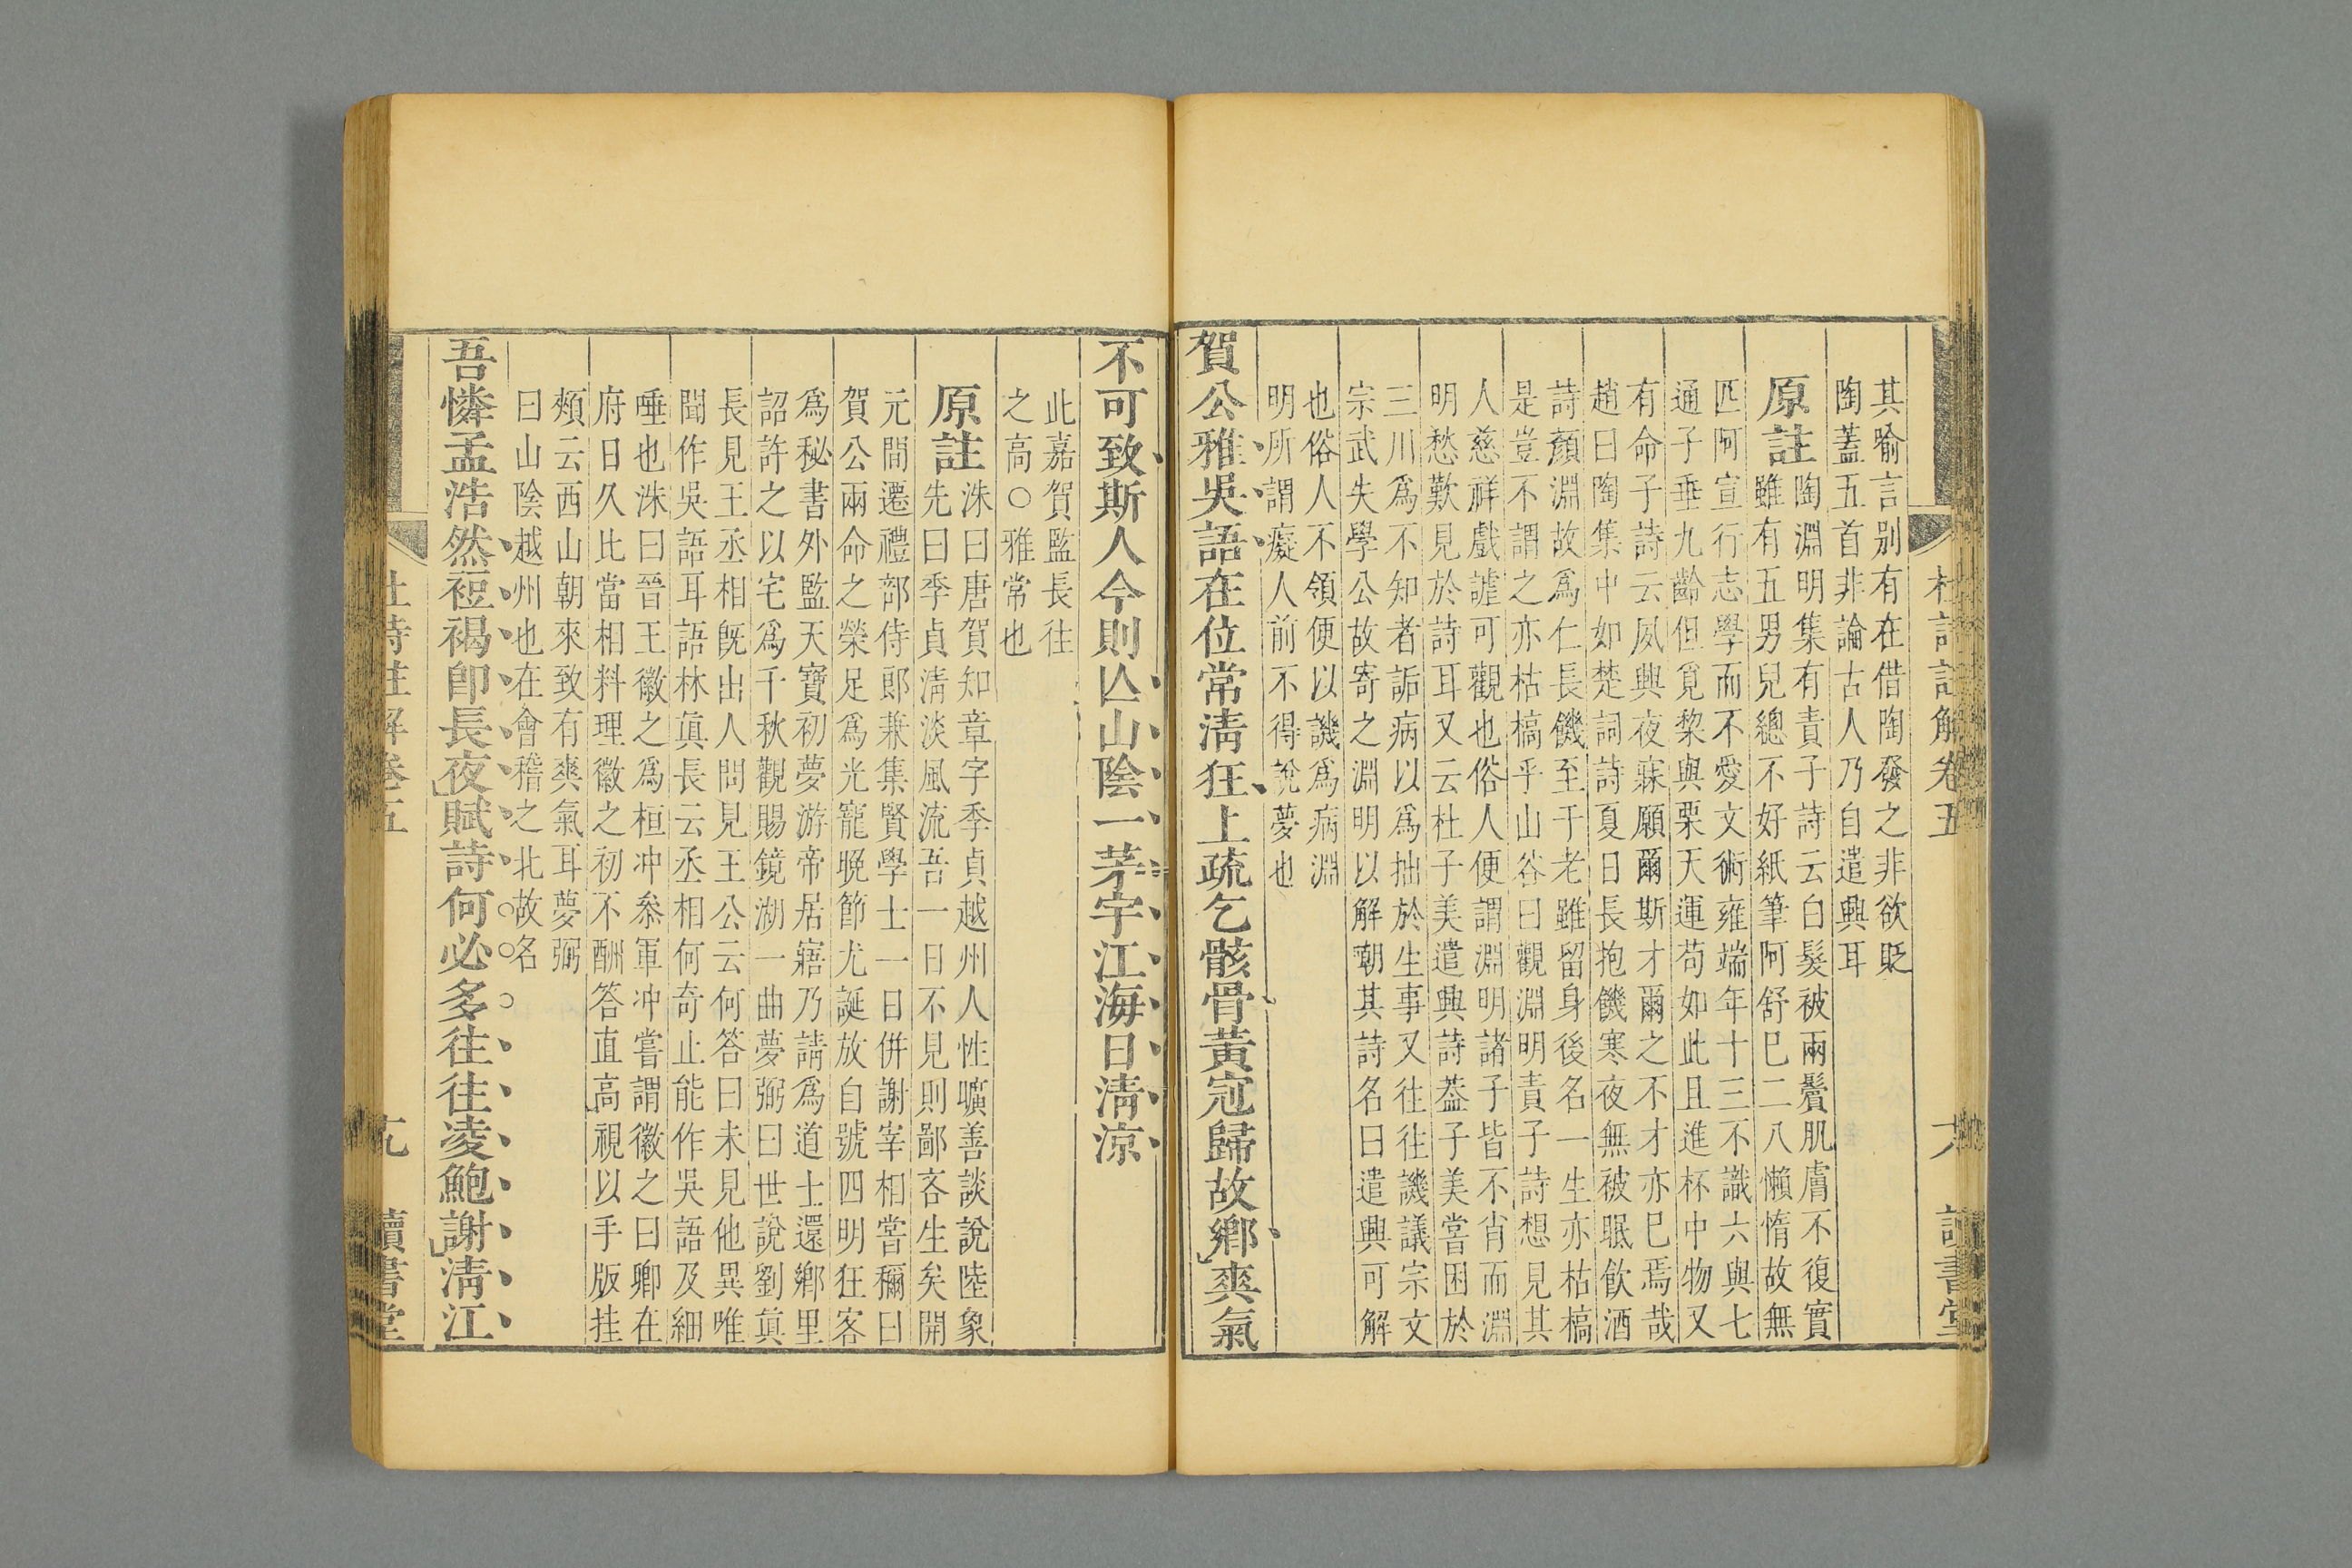 杜詩註解卷五
讀書堂
其喻言別有在借陶發之非欲貶
陶蓋五首非論古人乃自遣興耳
原註
陶淵明集有責子詩云白髮被兩鬢肌膚不復實
雖有五男兒總不好紙筆阿舒巳二八懶惰故無
匹阿宣行志學而不愛文術雍端年十三不識六與七
通子垂九齡但覓棃與栗天運苟如此且進杯中物又
有命子詩云夙興夜寐願爾斯才爾之不才亦巳焉哉
趙曰陶集中如楚詞詩夏日長抱饑寒夜無被眠飲酒
詩顏淵故爲仁長饑至于老雖留身後名一生亦枯槁
是豈不謂之亦枯槁乎山谷曰觀淵明責子詩想見其
人慈祥戲謔可觀也俗人便謂淵明諸子皆不肖而淵
明愁歎見於詩耳又云杜子美遣興詩葢子美嘗困於
三川爲不知者詬病以爲拙於生事又往往譏議宗文
宗武失學公故寄之淵明以解嘲其詩名曰遣興可解
也俗人不領便以譏爲病淵
明所謂癡人前不得說夢也
賀公雅吳語在位常淸狂上疏乞骸骨黃冠歸故鄉爽氣
不可致斯人今則亾山陰一茅宇江海日淸涼
此嘉賀監長往
之高○雅常也
原註
洙曰唐賀知章字季貞越州人性曠善談說陸象
先曰季貞淸淡風流吾一日不見則鄙吝生矣開
元間遷禮部侍郎兼集賢學士一日併謝宰相嘗稱曰
賀公兩命之榮足爲光寵晩節尤誕放自號四明狂客
爲秘書外監天寶初夢游帝居寤乃請爲道士還鄉里
詔許之以宅爲千秋觀賜鏡湖一曲夢弼曰世說劉眞
長見王丞相旣出人問見王公云何答曰未見他異唯
聞作吳語耳語林眞長云丞相何奇止能作吳語及細
唾也洙曰晉王徽之爲桓冲叅軍冲嘗謂徽之曰卿在
府日久比當相料理徽之初不酬答直高視以手版挂
頰云西山朝來致有爽氣耳夢弼
曰山陰越州也在會稽之北故名
吾憐孟浩然裋褐卽長夜賦詩何必多往往凌鮑謝淸江
杜詩註解卷五
讀書堂